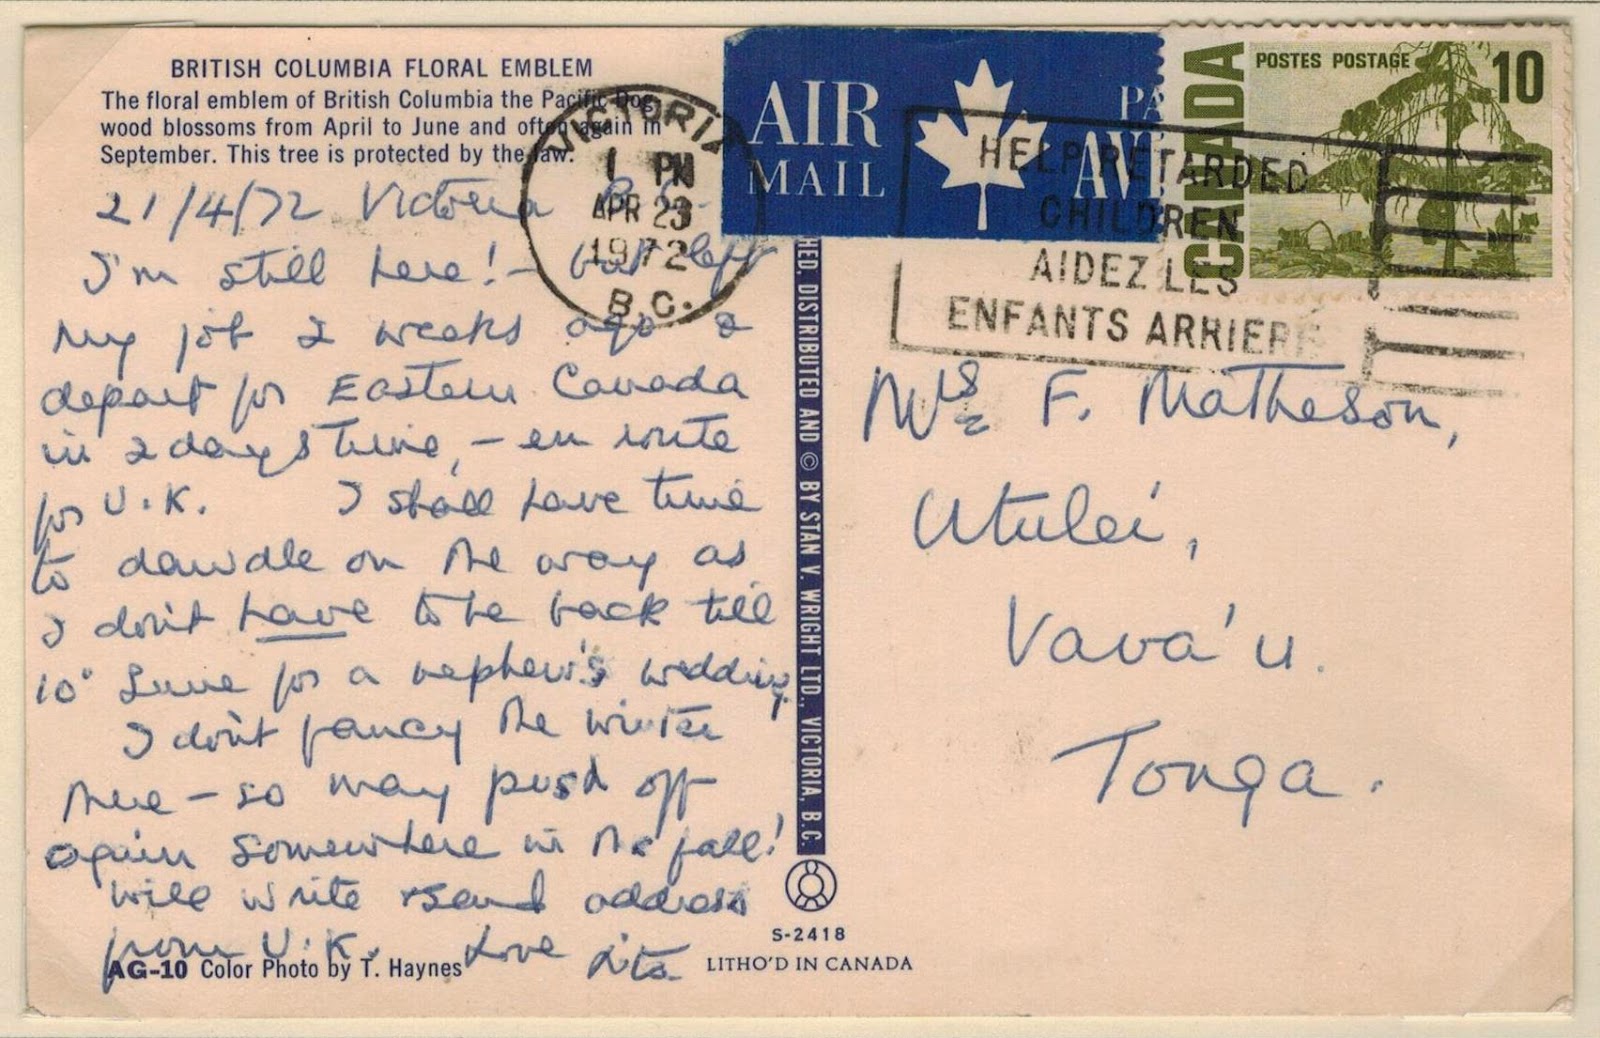 BRITISH COLUMBIA FLORAL EMBLEM
The floral emblem of British Columbia the Pacific Dog-
wood blossoms from April to June and often again in
September. This tree is protected by the law.
21/4/72 Victoria B.C.
I'm still here! - but left
my job 2 weeks ago &
depart for Eastern Canada
in 2 days time, - en route
for U.K. I shall have time
to dawdle on the way as
I don't have to be back till
10th June for a nephew's wedding.
I don't fancy the winter
there - so may push off
again somewhere in the fall!
Will write & send address
from U.K. Love
AG-10 Color Photo by T. Haynes
VICTORIA
1 PM
APR 23
1972
B.C.
AIR
MAIL
PA
AV
HELP RETARDED
CHILDREN
AIDEZ LES
ENFANTS ARRIERE
CANADA
POSTES POSTAGE
10
HED, DISTRIBUTED AND © BY STAN V. WRIGHT LTD., VICTORIA, B.C.
S-2418
LITHO'D IN CANADA
Mrs F. Matheson,
Utulei,
Vava'u.
Tonga.